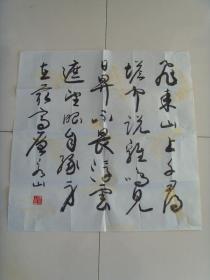 飛来山上千尋
塔闻説雞鳴見
日昇不畏浮雲
遮望眼自緣身
在最高層